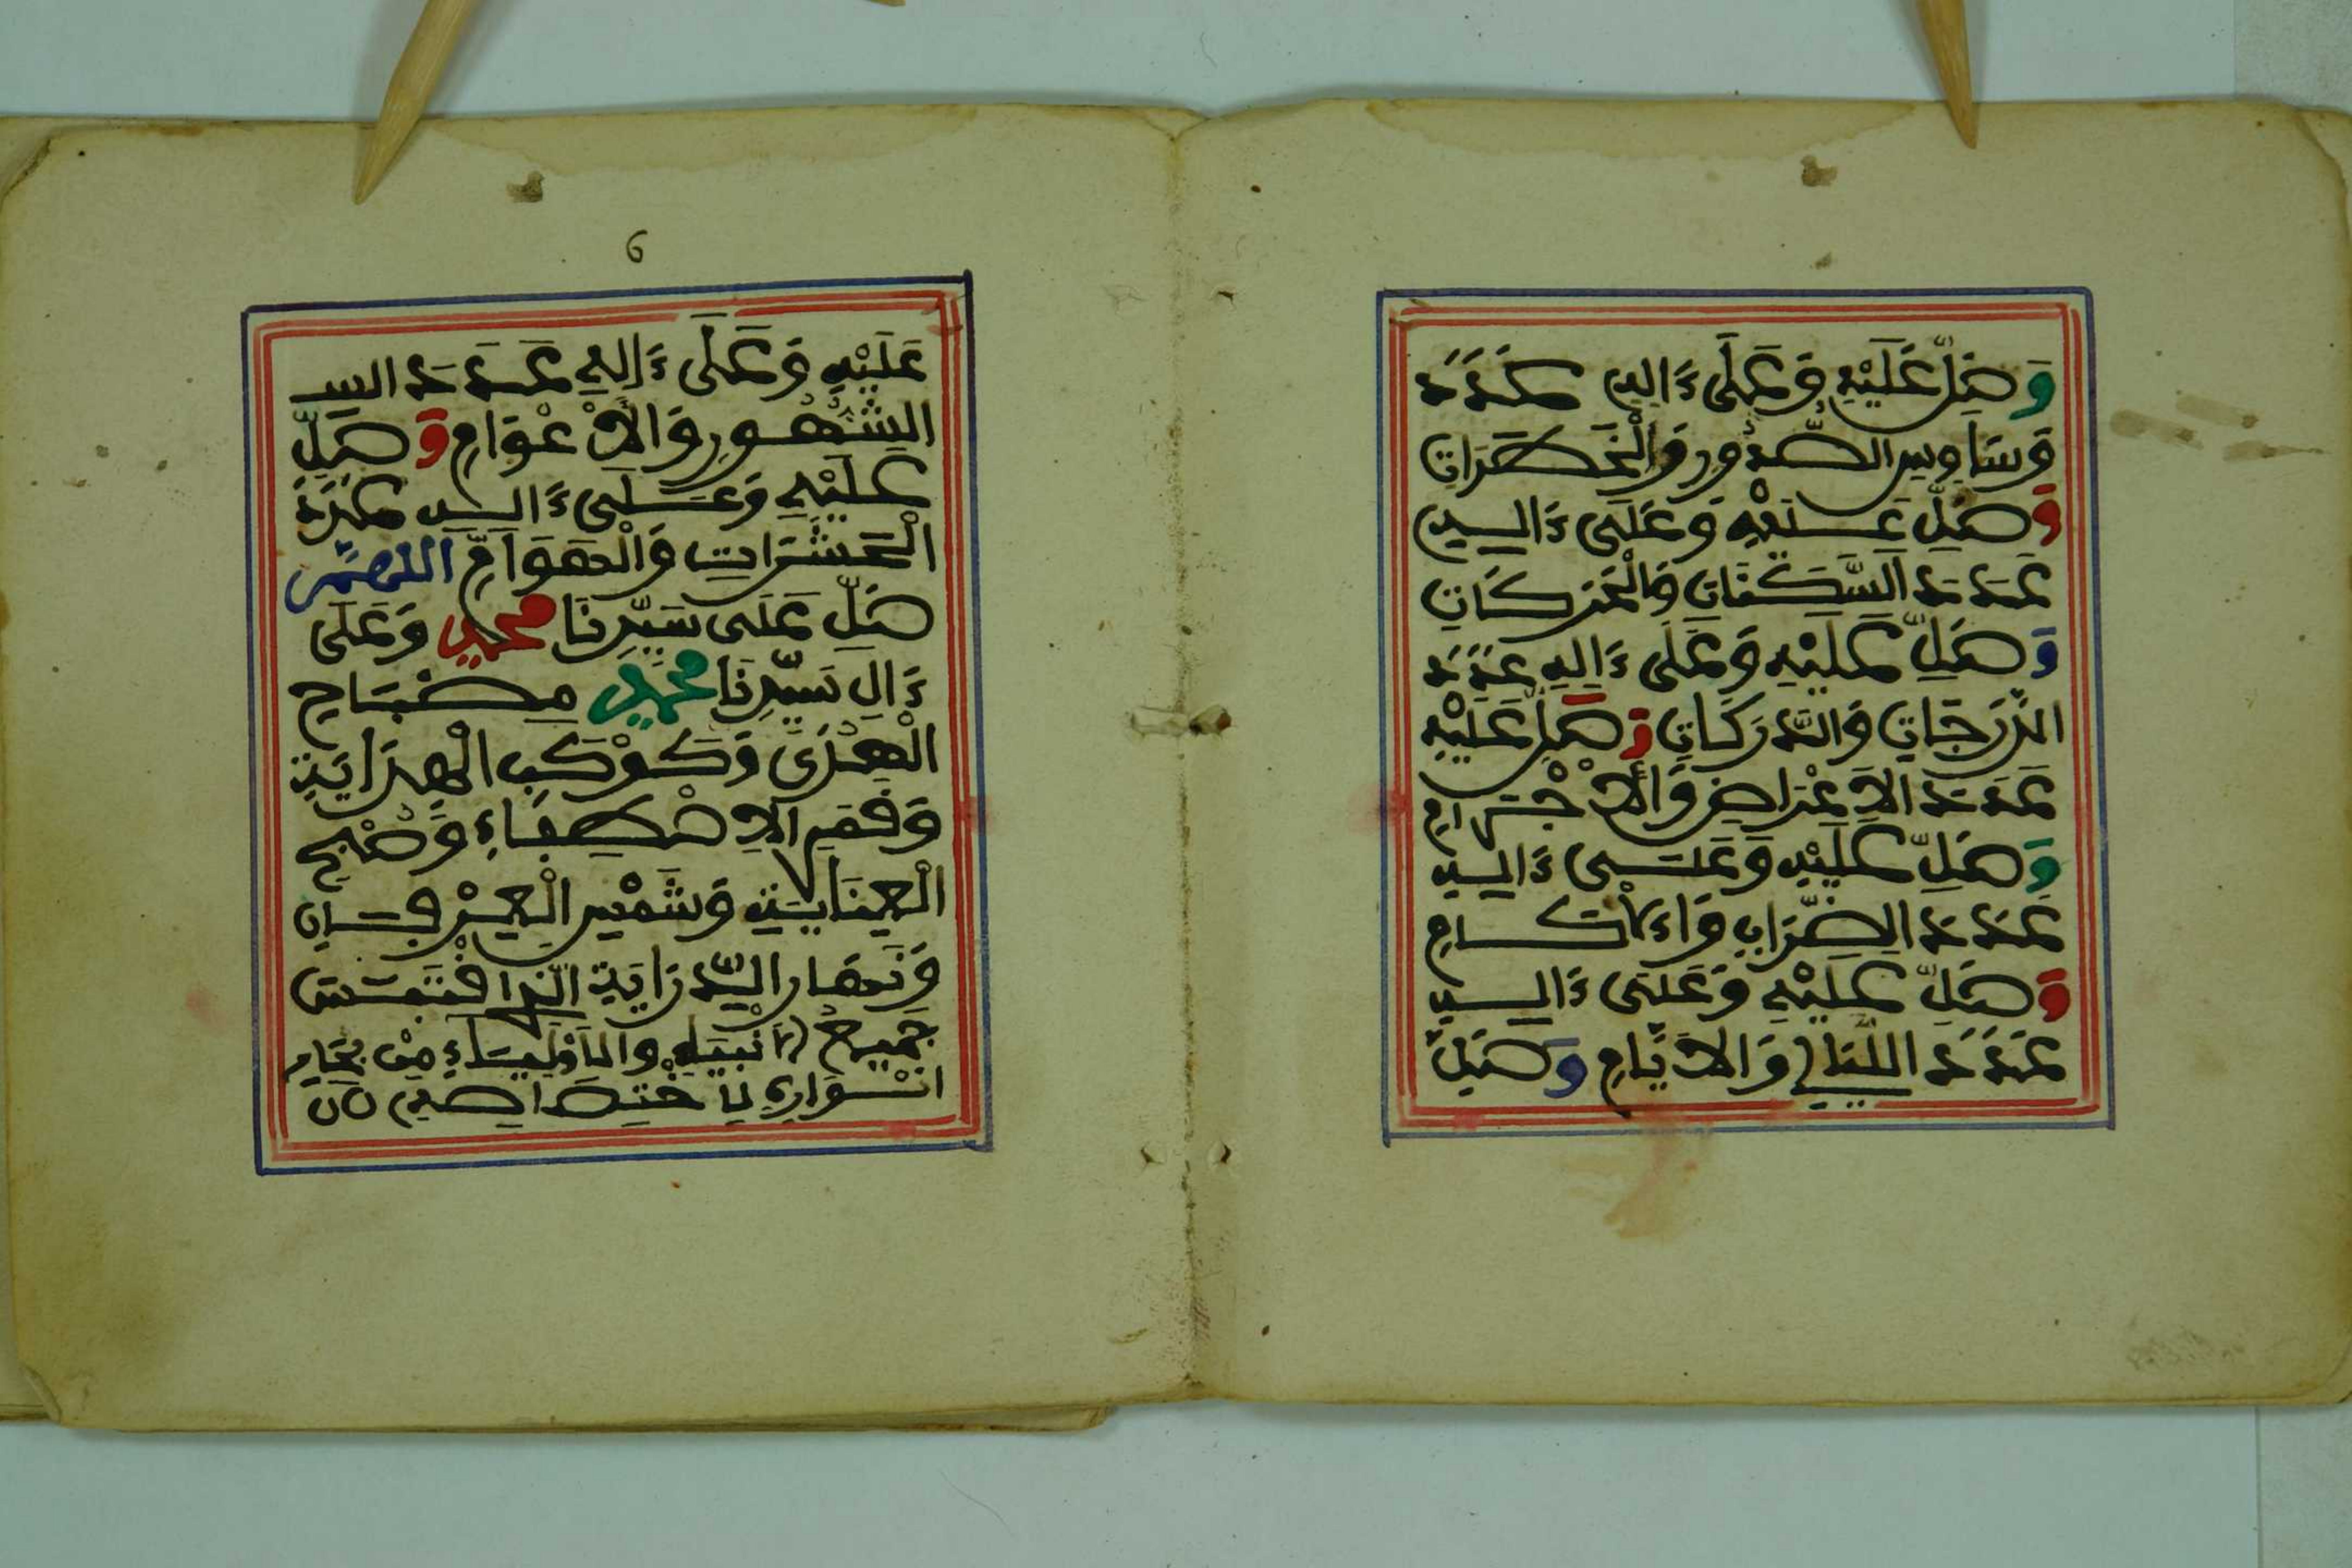 وَصَلِّ عَلَيْهِ وَعَلَى ءَالِهِ عَدَدَ
وَسَاوِسِ الصُّدُورِ وَالْخَطَرَاتِ
وَصَلِّ عَلَيْهِ وَعَلَى ءَالِهِ
عَدَدَ السَّكَنَاتِ وَالْحَرَكَاتِ
وَصَلِّ عَلَيْهِ وَعَلَى ءَالِهِ عَدَدَ
الدَّرَجَاتِ وَالدَّرَكَاتِ وَصَلِّ عَلَيْهِ
عَدَدَ الاَعْرَاضِ وَالاَجْرَامِ
وَصَلِّ عَلَيْهِ وَعَلَى ءَالِهِ
عَدَدَ الضِّرَابِ وَاءَلاْكَامِ
وَصَلِّ عَلَيْهِ وَعَلَى ءَالِهِ
عَدَدَ اللَّيَالِي وَالاَيَّامِ وَصَلِّ
6
عَلَيْهِ وَعَلَى ءَالِهِ عَدَدَ
الشُّهُورِ وَالاَعْوَامِ وَصَلِّ
عَلَيْهِ وَعَلَى ءَالِهِ عَدَدَ
الْحَشَرَاتِ وَالْهَوَامِّ اللَّهُمَّ
صَلِّ عَلَى سَيِّدِنَا مُحَمَّدٍ وَعَلَى
ءَالِ سَيِّدِنَا مُحَمَّدٍ مِصْبَاحِ
الْهُدَى وَكَوْكَبِ الْهِدَايَةِ
وَقَمَرِ الاِصْطِفَاءِ وَصُبْحِ
الْعِنَايَةِ وَشَمْسِ الْعِرْفَانِ
وَنَهَارِ الدِّرَايَةِ الَّذِي اقْتَبَسَ
جَمِيعُ الاَنْبِيَاءِ وَالاَوْلِيَاءِ مِنْ بِحَارِ